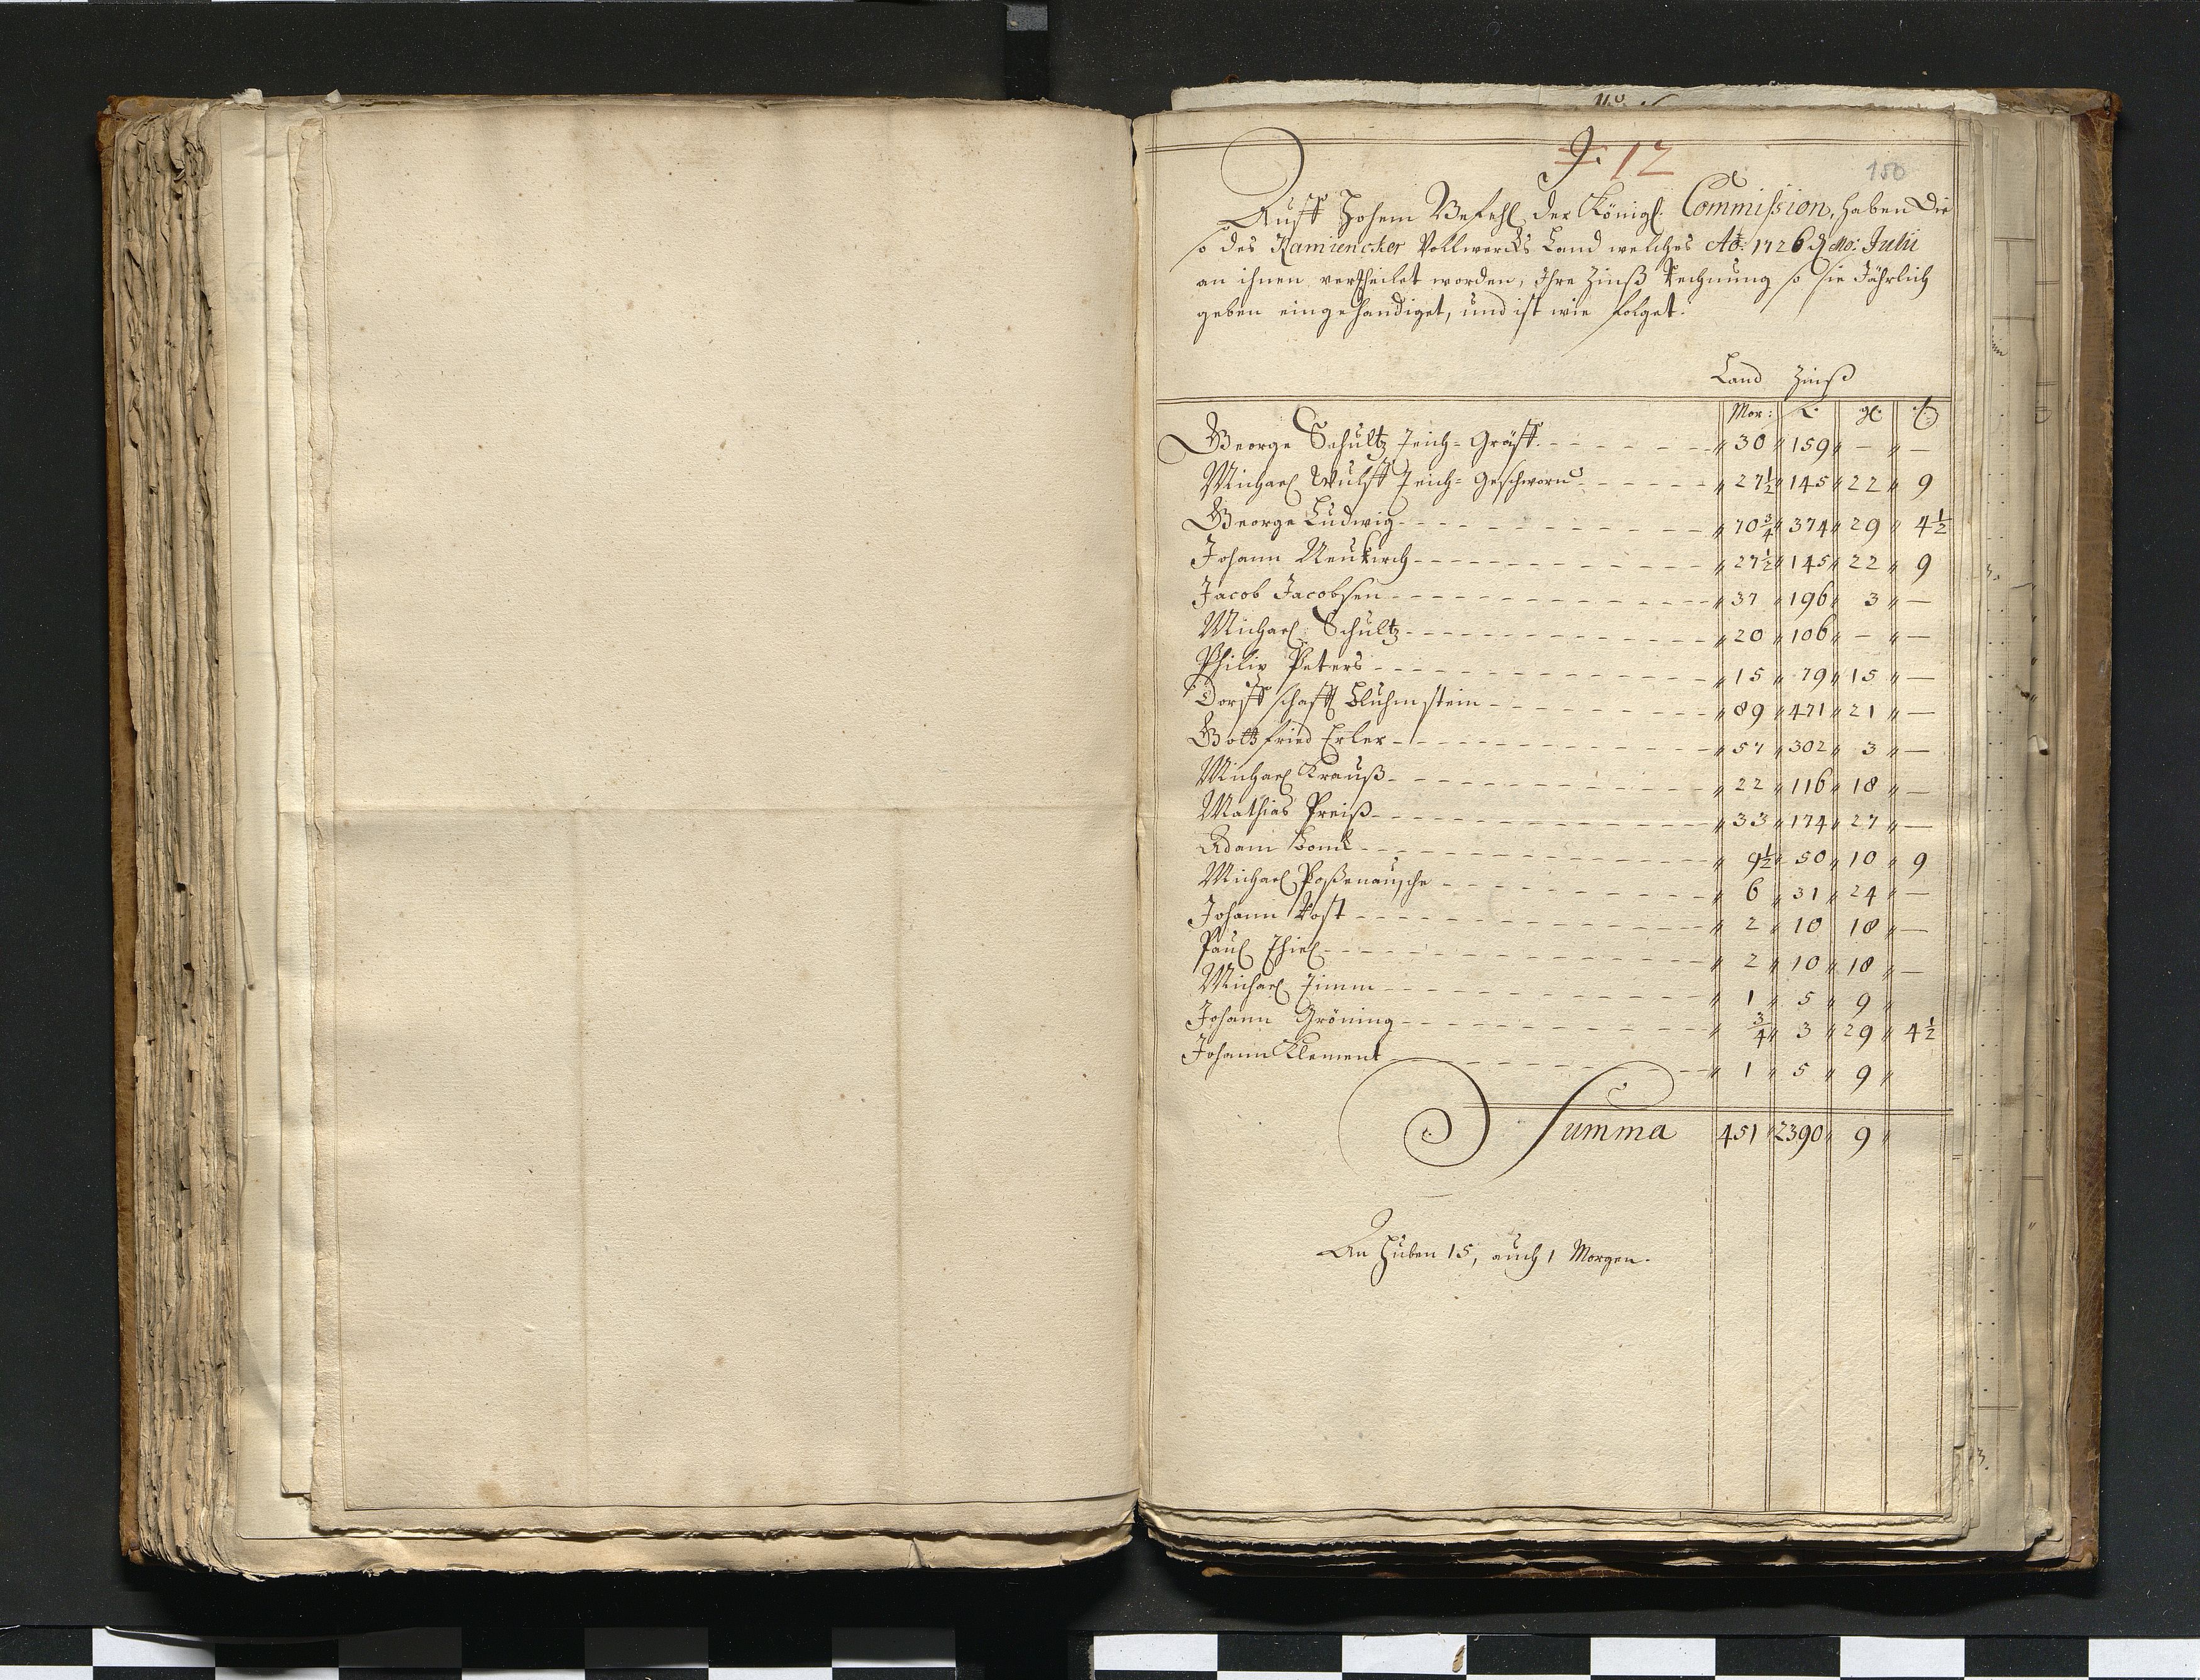 J. 12
150
Auff Hohem Befehl der Königl: Commission, haben die
so des Kamiencker Vollwercks Land welches Ao: 1726 d Mo: Julii
an ihnen vertheilet worden, Ihre Zinß Rechnung so sie Jährlich
geben eingehandiget, und ist wie folget.
Land Zinß
Mor: gl:
George Schultz Teich-Gräff 30 159 - -
Michael Wulff Teich-Geschworn 27½ 145 22 9
George Ludwig 70¾ 374 29 4½
Johann Neukirch 27½ 145 22 9
Jacob Jacobsen 37 196 3 -
Michael Schultz 20 106 - -
Philip Peters 15 79 15 -
Dorffschafft Bluhmstein 89 471 21 -
Gottfried Erler 57 302 3 -
Michael Krauß 22 116 18 -
Mathias Preiß 33 174 27 -
Adam 9½ 50 10 9
Michael Poßenausche 6 31 24 -
Johann Rost 2 10 18 -
Paul Thiel 2 10 18 -
Michael Timm 1 5 9
Johann Gröning ¾ 3 29 4½
Johann Klement 1 5 9
Summa 451 2390 9
An Huben 15, auch 1 Morgen.